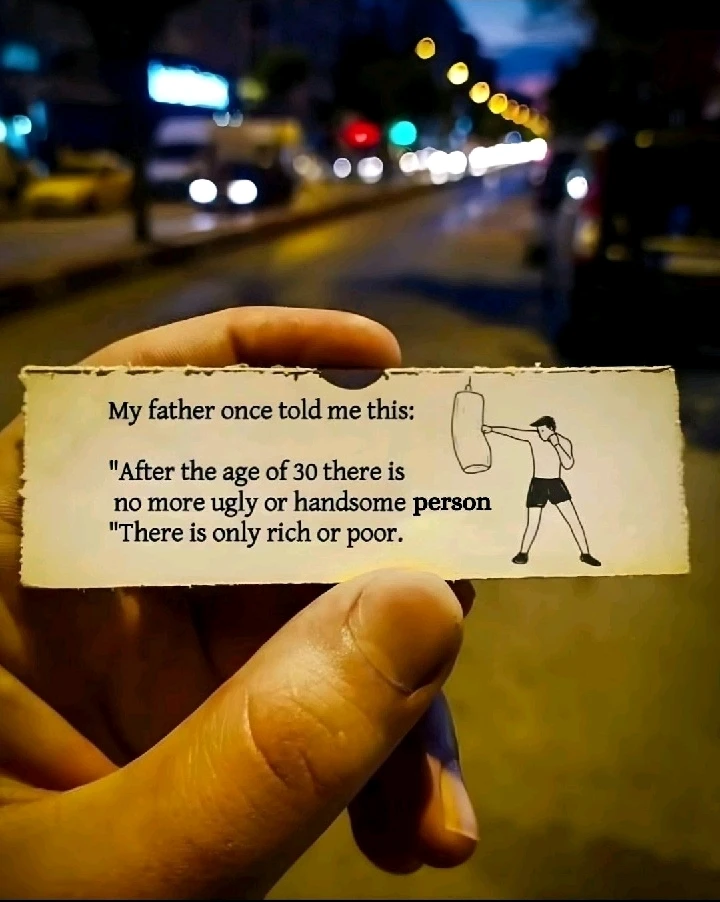 My father once told me this:
"After the age of 30 there is
no more ugly or handsome person
"There is only rich or poor.